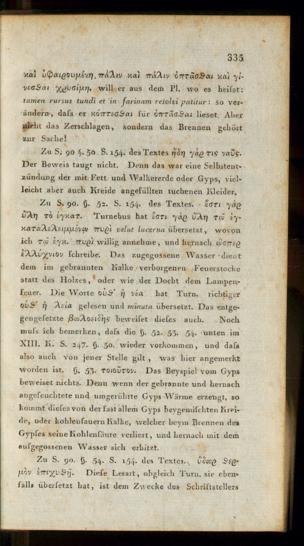 335
καὶ ὑφαιρουμένη, πάλιν καὶ πάλιν ὀπτᾶσθαι καὶ γί-
νεσθαι χρησίμη, will er aus dem Pl. wo es heifst:
tamen rursus tundi et in farinam resolvi patitur: so ver-
ändern, dafs er κόπτεσθαι für ὀπτᾶσθαι lieset. Aber
nicht das Zerschlagen, sondern das Brennen gehört
zur Sache!
Zu S. 90 §. 50. S. 154. des Textes ἤδη γάρ τις ναῦς.
Der Beweis taugt nicht. Denn das war eine Selbstent-
zündung der mit Fett und Walkererde oder Gyps, viel-
leicht aber auch Kreide angefüllten tuchenen Kleider.
Zu S. 90. §. 52. S. 154. des Textes. ἔστι γὰρ
ὕλη τὸ ἐγκατ. Turnebus hat ἔστι γὰρ ὕλη τῷ ἐγ-
καταλελιμμένῳ πυρὶ velut lucerna übersetzt, wovon
ich τῷ ἐγκ. πυρὶ willig annehme, und hernach ὥσπερ
ἐλλύχνιον schreibe. Das zugegossene Wasser dient
dem im gebrannten Kalke verborgenen Feuerstoffe
statt des Holzes, oder wie der Docht dem Lampen-
feuer. Die Worte οὐδ' ἡ νέα hat Turn. richtiger
οὐδ' ἡ λεία gelesen und minuta übersetzt. Das entge-
gengesetzte βωλοειδὴς beweiset dieses auch. Noch
mufs ich bemerken, dafs die §. 52. 53. 54. unten im
XIII. K. S. 247. §. 50. wieder vorkommen, und dafs
also auch von jener Stelle gilt, was hier angemerkt
worden ist. §. 53. τοιοῦτον. Das Beyspiel vom Gyps
beweiset nichts. Denn wenn der gebrannte und hernach
angefeuchtete und umgerührte Gyps Wärme erzeugt, so
kommt dieses von der fast allem Gyps beygemischten Krei-
de, oder kohlensauern Kalke, welcher beym Brennen des
Gypses seine Kohlensäure verliert, und hernach mit dem
aufgegossenen Wasser sich erhitzt.
Zu S. 90. §. 54. S. 154. des Textes. ὕδωρ θερ-
μὸν ἐπιχυθῇ. Diese Lesart, obgleich Turn. sie eben-
falls übersetzt hat, ist dem Zwecke des Schriftstellers